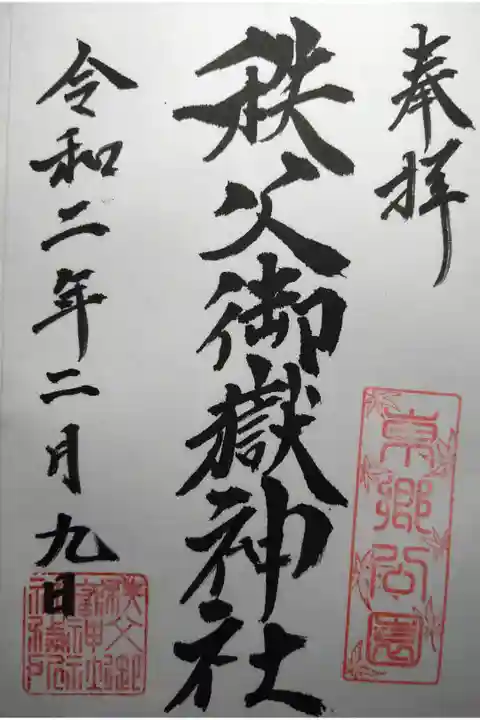 奉拝
東郷公園
秩父御嶽神社
令和二年二月九日
秩父御
嶽神社
祈祷所